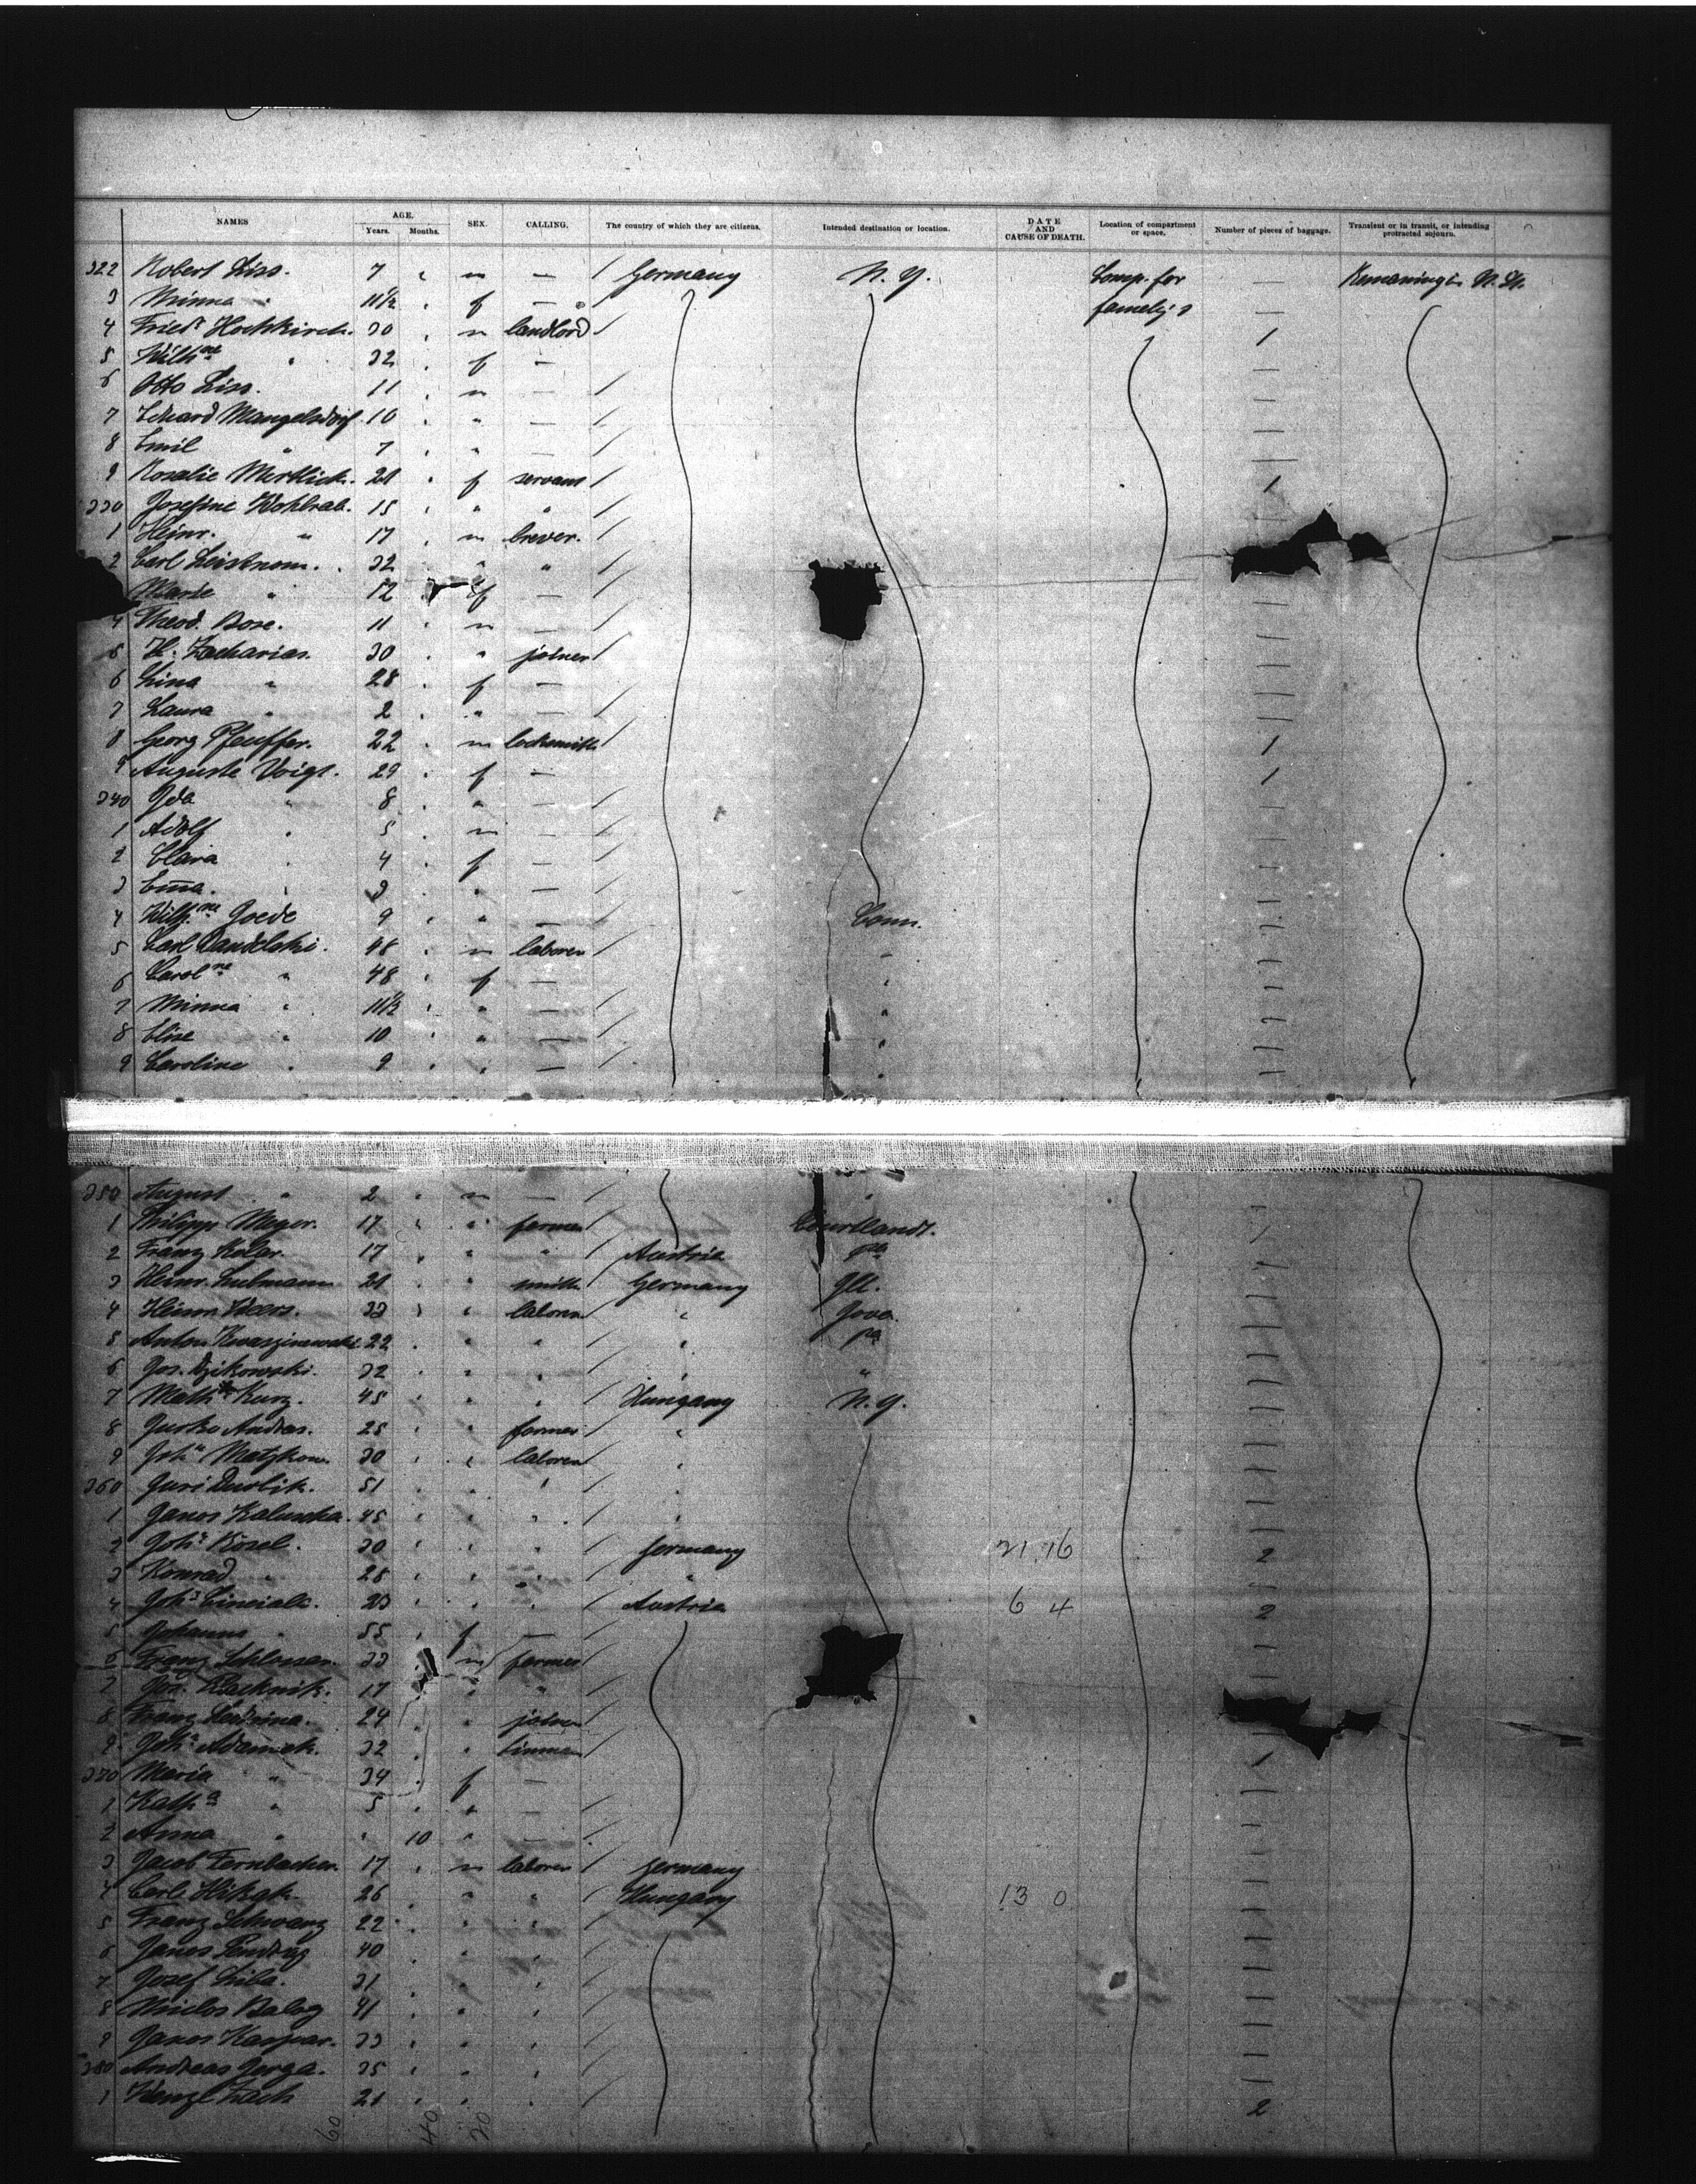 NAMES AGE. Years. Months. SEX. CALLING. The country of which they are citizens. Intended destination or location. DATE AND CAUSE OF DEATH. Location of compartment or space. Number of pieces of baggage. Transient or in transit, or intending protracted sojourn.
322 Robert Liss. 7 " m — / Germany N. Y. Comp. for — Remaining in U. St.
3 Minna " 11½ " f — families —
4 Friedr Hochkirch. 30 " m landlord / 1
5 Wilhne " 32 " f — —
6 Otto Liss. 11 " m — / —
7 Eduard Mangelsdorf 10 " " — / —
8 Emil " 7 " " — / —
9 Rosalie Mertlick. 21 " f servant / 1
330 Josefine Wohlrab. 15 " " " /
1 Heinr. " 17 " m brever. /
2 Carl Leistnom. 32 " " " /
Marie " 12 f — /
4 Theod. Bose. 11 " m — /
5 H. Zacharias. 30 " " joiner /
6 Lina " 28 " f — /
7 Laura " 2 " " — /
8 Georg Pfeuffer. 22 " m locksmith 1
9 Auguste Voigt. 29 " f — / 1
340 Ida " 8 " " — /
1 Adolf " 5 " m — /
2 Clara " 4 " f — /
3 Emma. " 3 " " — /
4 Wilhne Goede 9 " " — / Conn.
5 Carl Dandelski. 48 " m laborer / "
6 Carolne " 48 " f — "
7 Minna " 11½ " " — /
8 Elise " 10 " " — / "
9 Caroline " 9 " " — / "
350 August " 2 " m — / "
1 Philipp Meyer. 17 " " farmer Courtlandt.
2 Franz Kolar. 17 " " " / Austria Pa
3 Heinr. Luhmann 21 " " smith / Germany Ill.
4 Heinr. Weers. 33 " " laborer / " Iova
5 Anton Kwaszinewski 22 " " " / " Pa
6 Jos. Dzikowski. 32 " " " / " "
7 Mathias Kurz. 45 " " " / Hungary N. Y.
8 Jurko Andras. 25 " " farmer / "
9 John Matzkow. 30 " " laborer / "
360 Juri Durlik. 51 " " " / "
1 Janos Kaluscha. 45 " " " / "
2 Johs Kösel. 30 " " " / Germany 21.16 2
3 Konrad " 28 " " " / "
4 Johs Cincialk. 23 " " " / Austria 6 4 2
5 Johanna " 55 " f — /
6 Franz Schlosser. 33 m farmer /
7 Jos. 17 " " " /
8 Franz 24 " " joiner /
9 Johs Adamek. 32 " " tinman / 1
370 Maria " 34 " f —
1 Katha " 5 " " — /
2 Anna " " 10 " —
3 Jacob Fernbacher. 17 " m laborer / Germany
4 Carl 26 " " / Hungary 13 0
5 Franz Schwarz 22 " " " /
6 Janos 40 " " " /
7 Josef Liba. 31 " " " /
8 Miclos Balog 41 " " " /
9 Janos Kaspar. 33 " " " /
380 Andreas Gerga. 35 " " " /
1 Wenzl Zach 21 " " " / 2
60 40 20